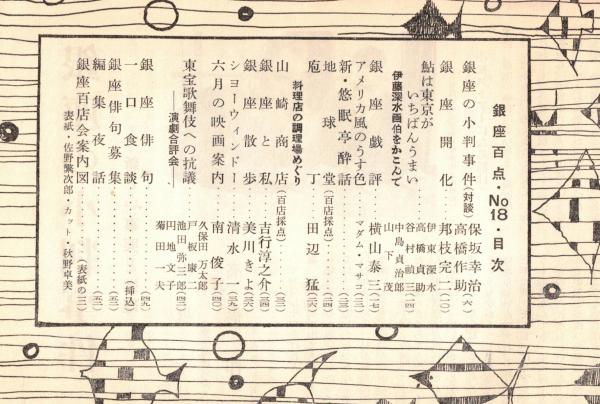 銀座百点・No18・目次
銀座の小判事件(対談) 保坂幸治 高橋作助 (六)
銀座開化 邦枝完二 (二〇)
鮎は東京がいちばんうまい
伊藤深水画伯をかこんで
伊東深水
高橋貞助
谷村禎三
中島貞治郎
山下茂
銀座戯評 横山泰三 (一七)
アメリカ風のうす色 マダム・マサコ
新・悠眠亭酔話
地球堂 (百店採点)
庖丁 田辺猛 (二六)
料理店の調理場めぐり
山崎商店 (百店採点)
銀座と私 吉行淳之介 (三四)
銀座散歩 美川きよ (三六)
ショーウィンドー 清水一 (三九)
六月の映画案内 南俊子 (四〇)
東宝歌舞伎への抗議
――演劇合評会――
久保田万太郎
戸板康二
池田弥三郎
円地文子
菊田一夫
銀座俳句 (四九)
一口食談 (挿込)
銀座俳句募集 (五一)
編集夜話 (五二)
銀座百店会案内図 (表紙の三)
表紙・佐野繁次郎・カット・秋野卓美